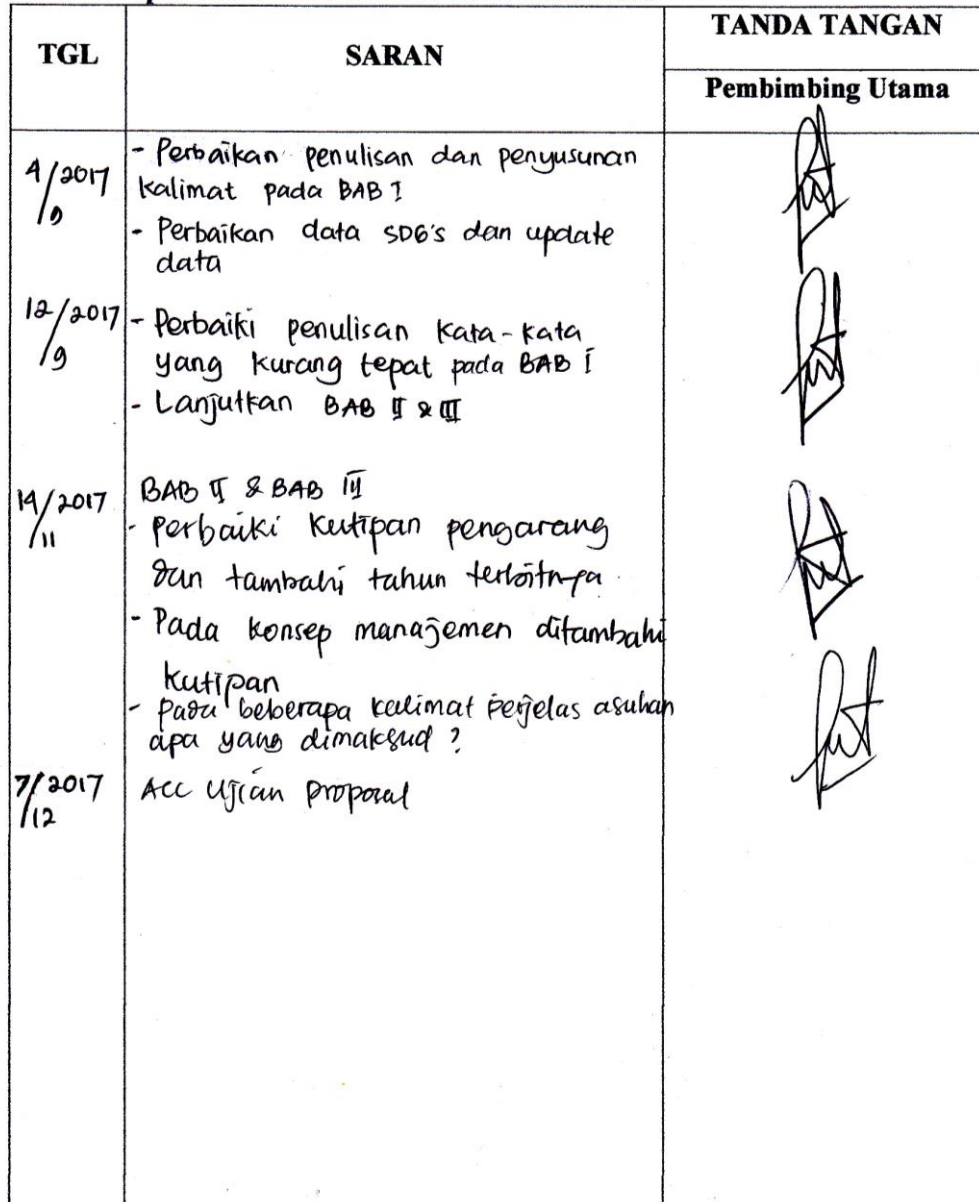 TGL
SARAN
TANDA TANGAN
Pembimbing Utama
4/2017
/9
- Perbaikan penulisan dan penyusunan
kalimat pada BAB I
- Perbaikan data SDG's dan update
data
12/2017
/9
- Perbaiki penulisan kata-kata
yang kurang tepat pada BAB I
- Lanjutkan BAB II & III
14/2017
/11
BAB II & BAB III
- Perbaiki kutipan pengarang
dan tambahi tahun terbitnya
- Pada konsep manajemen ditambahi
kutipan
- pada beberapa kalimat perjelas asuhan
apa yang dimaksud ?
7/2017
/12
ACC Ujian proposal